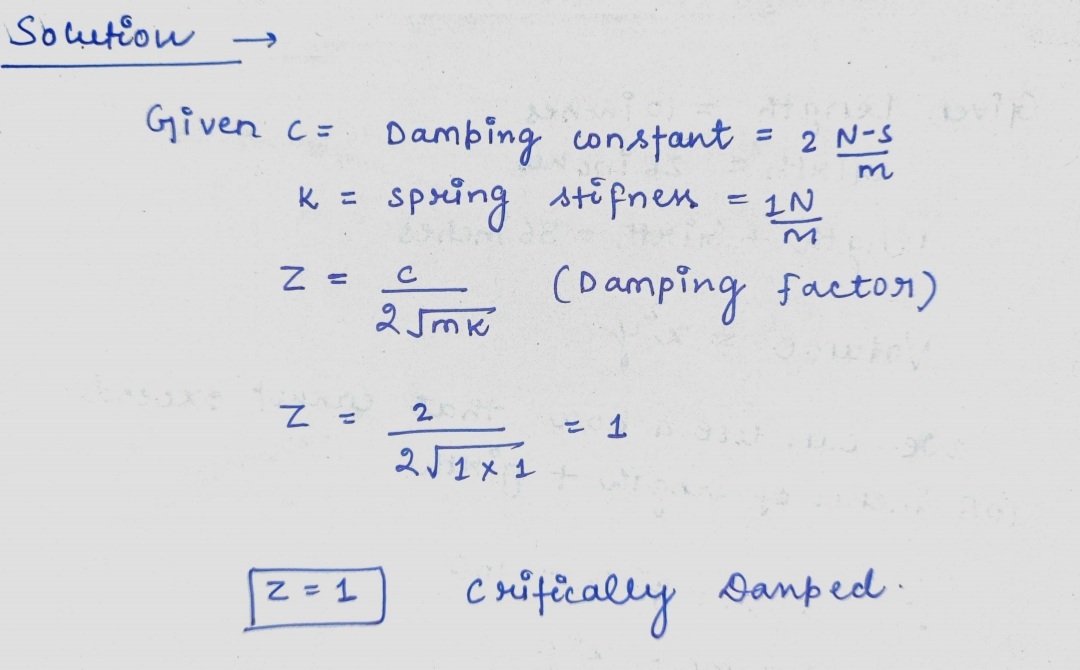 Solution →
Given C = Damping constant = 2 N-S/m
K = spring stifness = 1N/m
Z = C/2√mK (Damping factor)
Z = 2/2√1×1 = 1
Z = 1 Critically Damped.